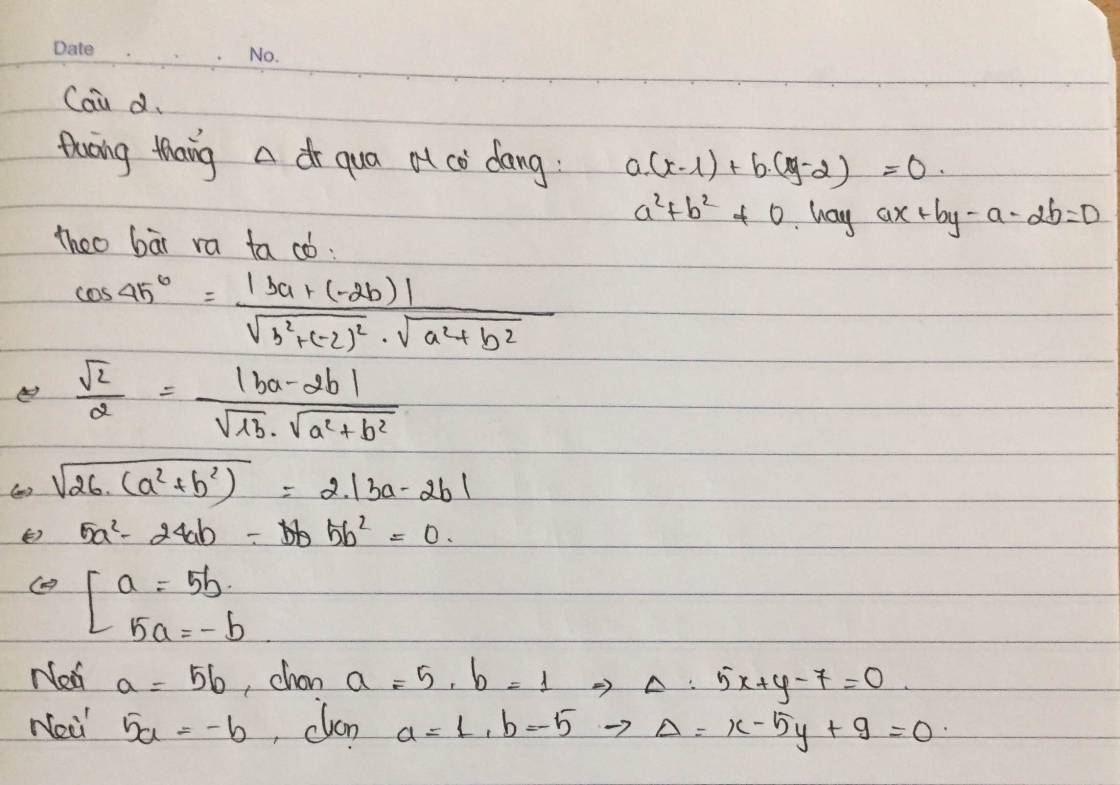 Date . . . No.
Câu 2.
Đường thẳng Δ đi qua M có dạng: a.(x-1) + b.(y-2) = 0.
a² + b² ≠ 0. hay ax + by - a - 2b = 0
Theo bài ra ta có:
cos 45° = |3a + (-2b)| / √(3² + (-2)²) . √(a² + b²)
⇔ √2/2 = |3a - 2b| / √13 . √(a² + b²)
⇔ √(26.(a² + b²)) = 2.|3a - 2b|
⇔ 5a² - 24ab - 5b² = 0.
⇔ [ a = 5b.
5a = -b.
Nếu a = 5b, chọn a = 5, b = 1 → Δ: 5x + y - 7 = 0.
Nếu 5a = -b, chọn a = 1, b = -5 → Δ = x - 5y + 9 = 0.